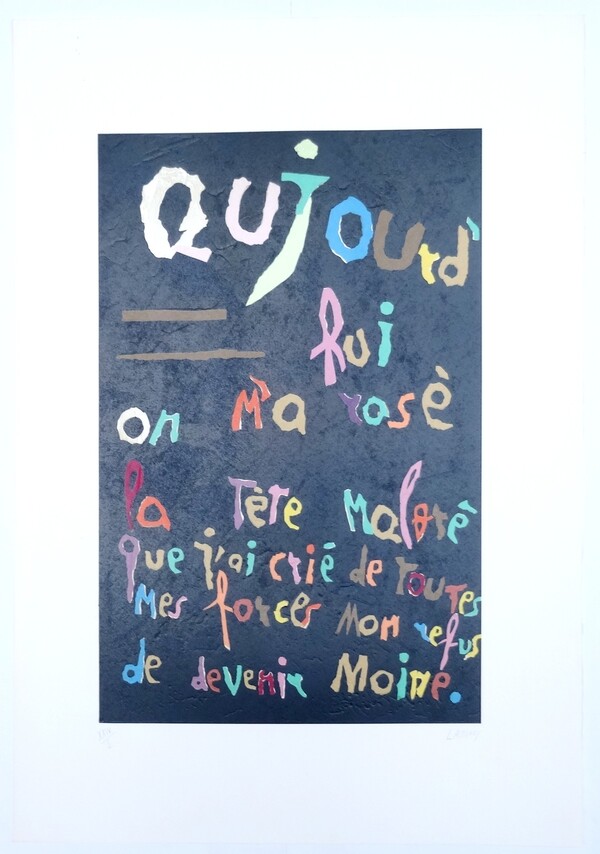 QUJOURD'
hui
on M'a rosè
la Tète Malgrè
que j'ai crié de toutes
Mes forces Mon refus
de devenir Moine.